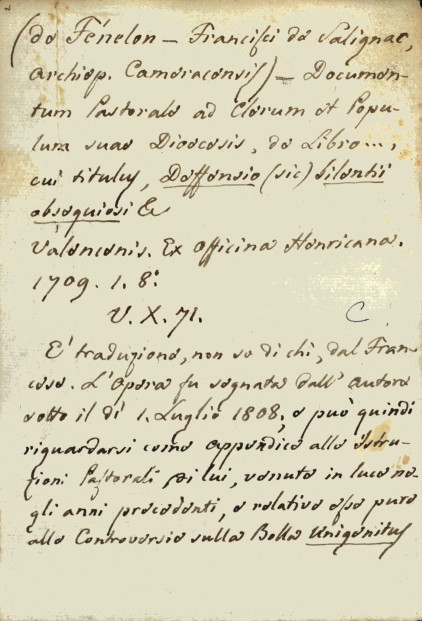 (de Fénelon – Francisci de Salignac,
archiep. Cameracensis) – Documen-
tum Pastorale ad Clerum et Popu-
lum suae Dioecesis, de Libro...,
cui titulus, Deffensio (sic) silentii
obsequiosi &
Valencenis. Ex Officina Henricana.
1709. 1. 8:
V. X. 71.
C
E' traduzione, non so di chi, dal Fran-
cese. L'Opera fu segnata dall' autore
sotto il dí 1. Luglio 1808, e può quindi
riguardarsi come appendice alle istru-
zioni Pastorali di lui, venute in luce ne-
gli anni precedenti, e relative esse pure
alle Controversie sulla Bolla Unigenitus